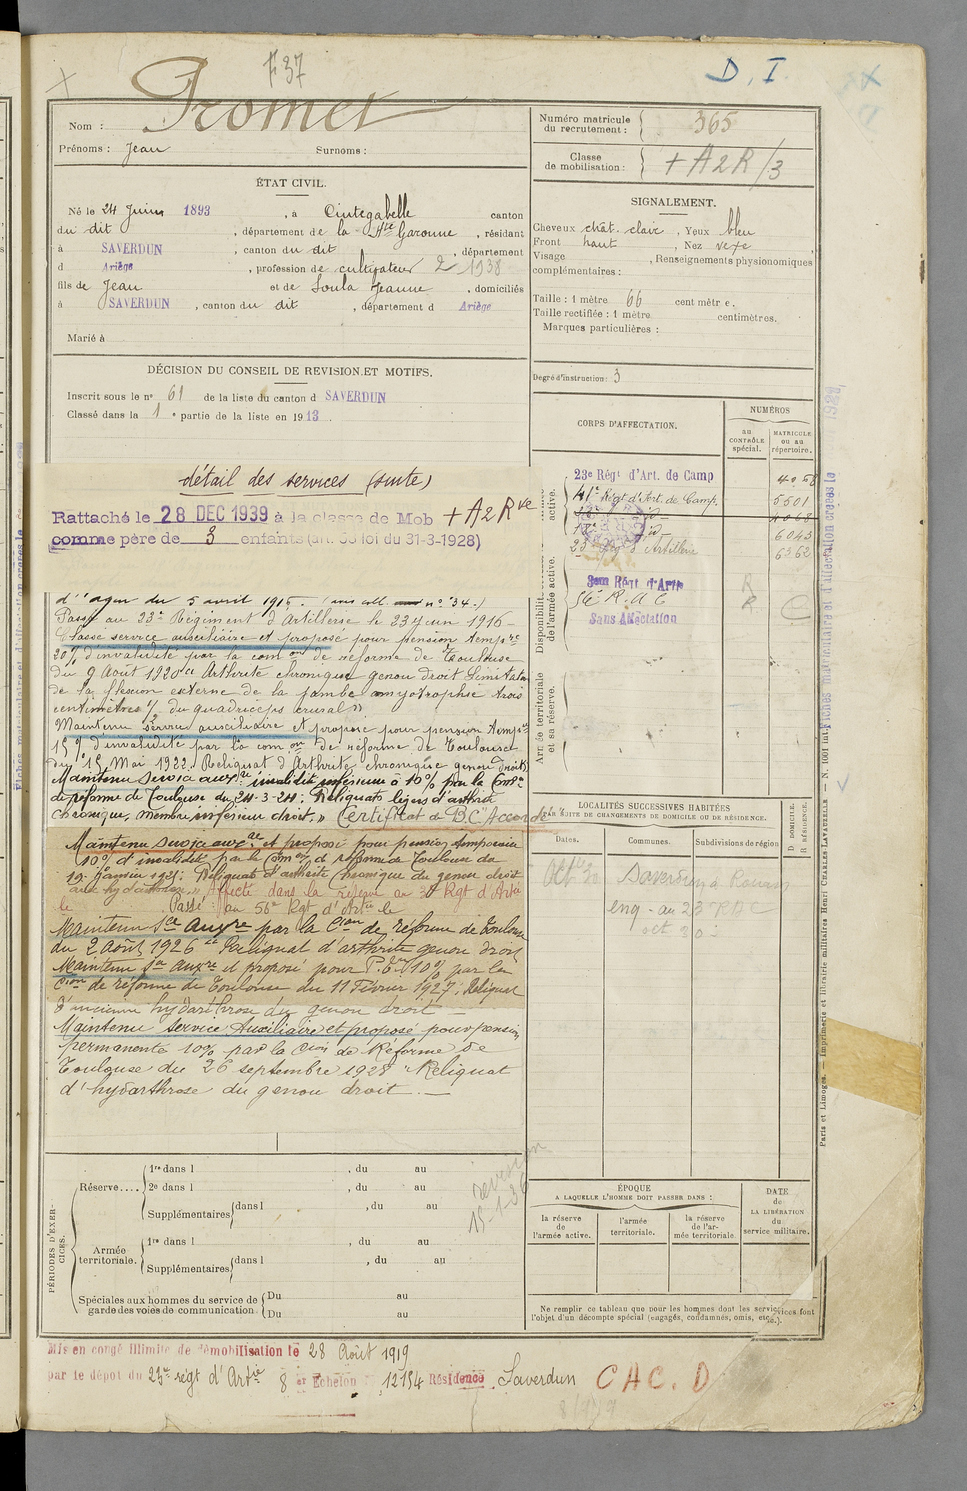 F37
D. I
Promet
Nom :
Prénoms : Jean Surnoms :
Numéro matricule du recrutement : 365
Classe de mobilisation : + A2R/3
ÉTAT CIVIL.
Né le 24 Juin 1893, à Cintegabelle canton
du dit, département de la Hte Garonne, résidant
à SAVERDUN, canton du dit, département
d Ariège, profession de cultivateur 2 1938
fils de Jean et de Soula Jeanne, domiciliés
à SAVERDUN, canton du dit, département d Ariège
Marié à
SIGNALEMENT.
Cheveux chât. clair, Yeux bleu
Front haut, Nez vexe
Visage , Renseignements physionomiques
complémentaires :
Taille : 1 mètre 66 centimètre.
Taille rectifiée : 1 mètre centimètres.
Marques particulières :
Degré d'instruction : 3
DÉCISION DU CONSEIL DE REVISION ET MOTIFS.
Inscrit sous le n° 61 de la liste du canton d SAVERDUN
Classé dans la 1e partie de la liste en 1913.
détail des services (suite)
Rattaché le 28 DEC 1939 à la classe de Mob + A2Rve
comme père de 3 enfants (art. 58 loi du 31-3-1928)
CORPS D'AFFECTATION.
NUMÉROS
au CONTRÔLE spécial.
MATRICULE ou au répertoire.
23e Régt d'Art. de Camp
41e Régt d'Art. de Camp. 5501
6043
23e Rég d'Artillerie 6362
3em Régt d'Artie
56e R.A.C
Sans Affectation
active.
Disponibilité de l'armée active.
Armée territoriale et sa réserve.
d'agen du 5 avril 1915.
Passé au 23e Régiment d'Artillerie le 23 juin 1916 -
Classé service auxiliaire et proposé pour pension tempre
20% d'invalidité par la comon de réforme de Toulouse
du 9 Août 1920 "Arthrite chronique genou droit Limitation
de la flexion externe de la jambe amyotrophie trois
centimètres ½ du quadriceps crural"
Maintenu service auxiliaire et proposé pour pension tempre
15% d'invalidité par la comon de réforme de Toulouse
du 15 Mai 1922. Reliquat d'Arthrite chronique genou droit
Maintenu service auxre invalidité inférieure à 10% par la Comon
de réforme de Toulouse du 24-3-24 : Reliquats légers d'arthrite
chronique, membre inférieur droit." Certificat de B.C "Accordé"
Maintenu service auxre et proposé pour pension temporaire
10% d'invalidité par la Comon de réforme de Toulouse du
19 Janvier 1925: Reliquat d'arthrite chronique du genou droit
Affecté dans la réserve au 3e Rgt d'Artie
le Passé au 56e Rgt d'Artie le
Maintenu Sce Auxre par la Cion de réforme de Toulouse
du 2 août 1926 Reliquat d'arthrite genou droit
Maintenu Sce auxre et proposé pour P.tre 10% par la
Cion de réforme de Toulouse du 11 Février 1927: Reliquat
d'ancienne hydarthrose du genou droit —
Maintenu Service Auxiliaire et proposé pour pension
permanente 10% par la Cion de Réforme de
Toulouse du 26 septembre 1928 "Reliquat
d'hydarthrose du genou droit. —
LOCALITÉS SUCCESSIVES HABITÉES
PAR SUITE DE CHANGEMENTS DE DOMICILE OU DE RÉSIDENCE.
Dates. Communes. Subdivisions de région
D DOMICILE. R RÉSIDENCE.
Octre 30 Saverdun
eng - au 23 RAC
oct 30
revision
15-1-36
PÉRIODES D'EXERCICES.
Réserve.... 1re dans l , du au
2e dans l , du au
Supplémentaires dans l , du au
Armée territoriale. 1re dans l , du au
Supplémentaires dans l , du au
Spéciales aux hommes du service de garde des voies de communication Du au
Du au
ÉPOQUE
A LAQUELLE L'HOMME DOIT PASSER DANS :
la réserve de l'armée active.
l'armée territoriale.
la réserve de l'armée territoriale.
DATE de LA LIBÉRATION du service militaire.
Ne remplir ce tableau que pour les hommes dont les services font
l'objet d'un décompte spécial (engagés, condamnés, omis, etc.).
Paris et Limoges. — Imprimerie et librairie militaires Henri CHARLES LAVAUZELLE — N. 1001 int.
Fiches matriculaires et d'affectation créées le
Mis en congé illimité de démobilisation le 28 Août 1919
par le dépôt du 23e régt d'Artie 8e Échelon 12154 Résidence Saverdun
CHC. D